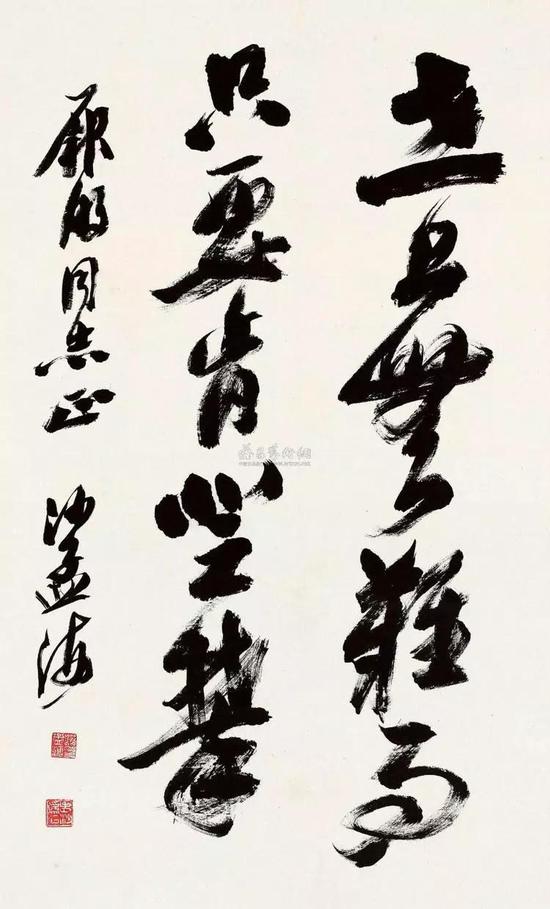 世上無難事
只要肯登攀
同志正
沙孟海